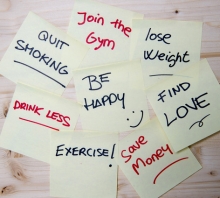 QUIT
SMOKING
Join the
Gym
lose
Weight
BE
HAPPY
DRINK LESS
FIND
LOVE
EXERCISE!
Save
Money